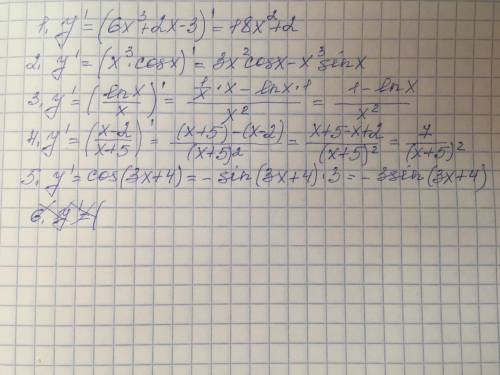 1. y' = (6x³+2x-3)' = 18x²+2
2. y' = (x³·cosx)' = 3x²cosx-x³sinx
3. y' = (lnx/x)' = (1/x·x-lnx·1)/x² = (1-lnx)/x²
4. y' = ((x-2)/(x+5))' = ((x+5)-(x-2))/(x+5)² = (x+5-x+2)/(x+5)² = 7/(x+5)²
5. y' = cos(3x+4) = -sin(3x+4)·3 = -3sin(3x+4)
6. y' = (